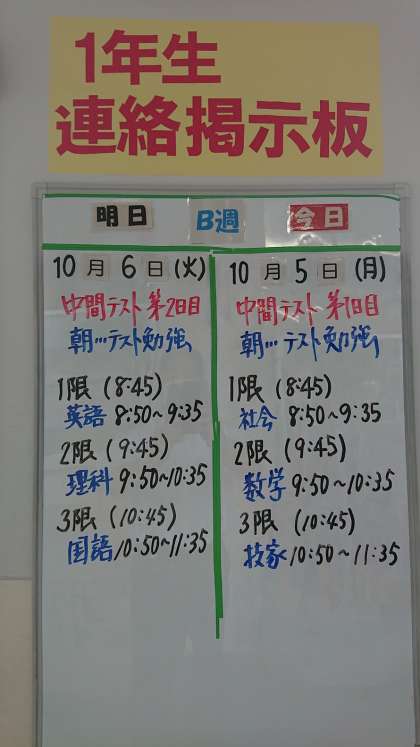 1年生
連絡掲示板
明日
B週
今日
10月6日(火)
中間テスト第2日目
朝…テスト勉強
1限(8:45)
英語 8:50~9:35
2限(9:45)
理科 9:50~10:35
3限(10:45)
国語 10:50~11:35
10月5日(月)
中間テスト第1日目
朝…テスト勉強
1限(8:45)
社会 8:50~9:35
2限(9:45)
数学 9:50~10:35
3限(10:45)
技家 10:50~11:35